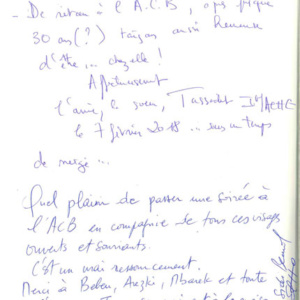 - De retour à l'A.C.B, après presque
30 ans (?) toujours aussi heureuse
d'être... chez elle !
Affectueusement
l'amie, la sœur, Tassadit
le 7 février 2018 ... sous un temps
de neige...
Quel plaisir de passer une soirée à
l'ACB en compagnie de tous ces visages
ouverts et souriants.
C'est un vrai ressourcement.
Merci à Beben, Arezki, Mbarek et toute